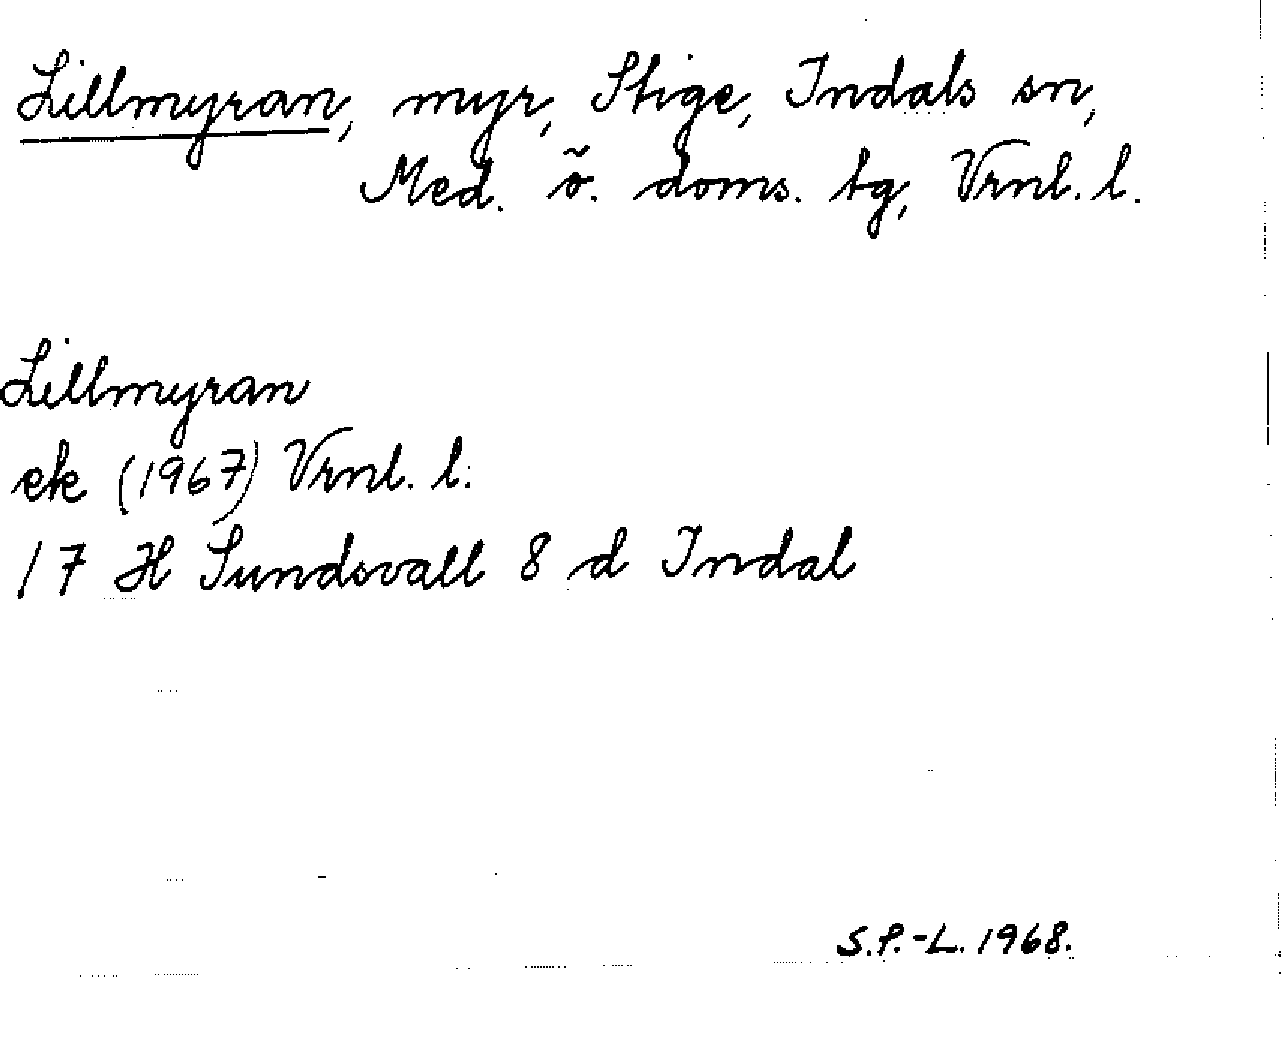 Lillmyran, myr, Stige, Indals sn,
Med. ö. doms. tg, Vrnl. l.
Lillmyran
ek (1967) Vrnl. l.
17 H Sundsvall 8 d Indal
S.P.-L. 1968.